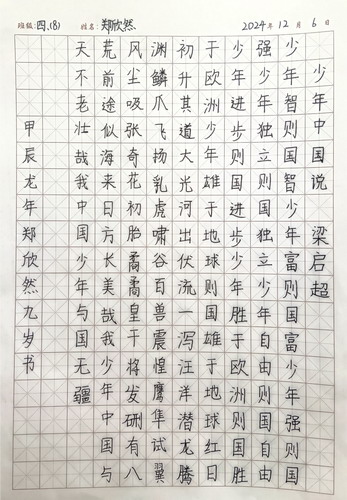 班级:四.(8) 姓名:郑欣然 2024年12月6日
少年中国说 梁启超
少年智则国智少年富则国富少年强则国
强少年独立则国独立少年自由则国自由
少年进步则国进步少年胜于欧洲则国胜
于欧洲少年雄于地球则国雄于地球红日
初升其道大光河出伏流一泻汪洋潜龙腾
渊鳞爪飞扬乳虎啸谷百兽震惶鹰隼试翼
风尘吸张奇花初胎矞矞皇干将发硎有八
荒前途似海来日方长美哉我少年中国与
天不老壮哉我中国少年与国无疆
甲辰龙年郑欣然九岁书